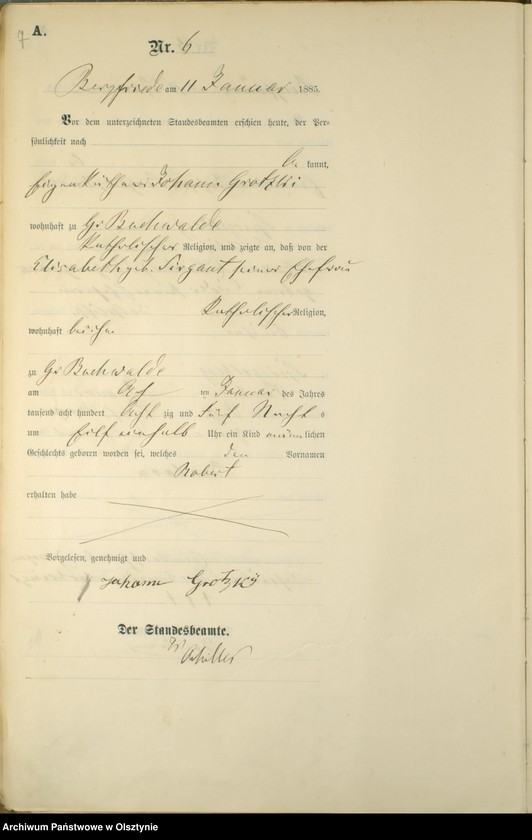 7
A.
Nr. 6
Bergfriede am 11 Januar 1885.
Vor dem unterzeichneten Standesbeamten erschien heute, der Per-
sönlichkeit nach
be kannt,
Eigenkäthner Johann Grotzki
wohnhaft zu Gr Buchwalde
Katholischer Religion, und zeigte an, daß von der
Elisabeth geb. seiner Ehefrau
Katholischer Religion,
wohnhaft bei ihm
zu Gr Buchwalde
am Ach ten Januar des Jahres
tausend acht hundert Acht zig und Fünf Nacht s
um Eilf einhalb Uhr ein Kind männ lichen
Geschlechts geboren worden sei, welches den Vornamen
Robert
erhalten habe
Vorgelesen, genehmigt und
Johann Grotzky
Der Standesbeamte.
Archiwum Państwowe w Olsztynie